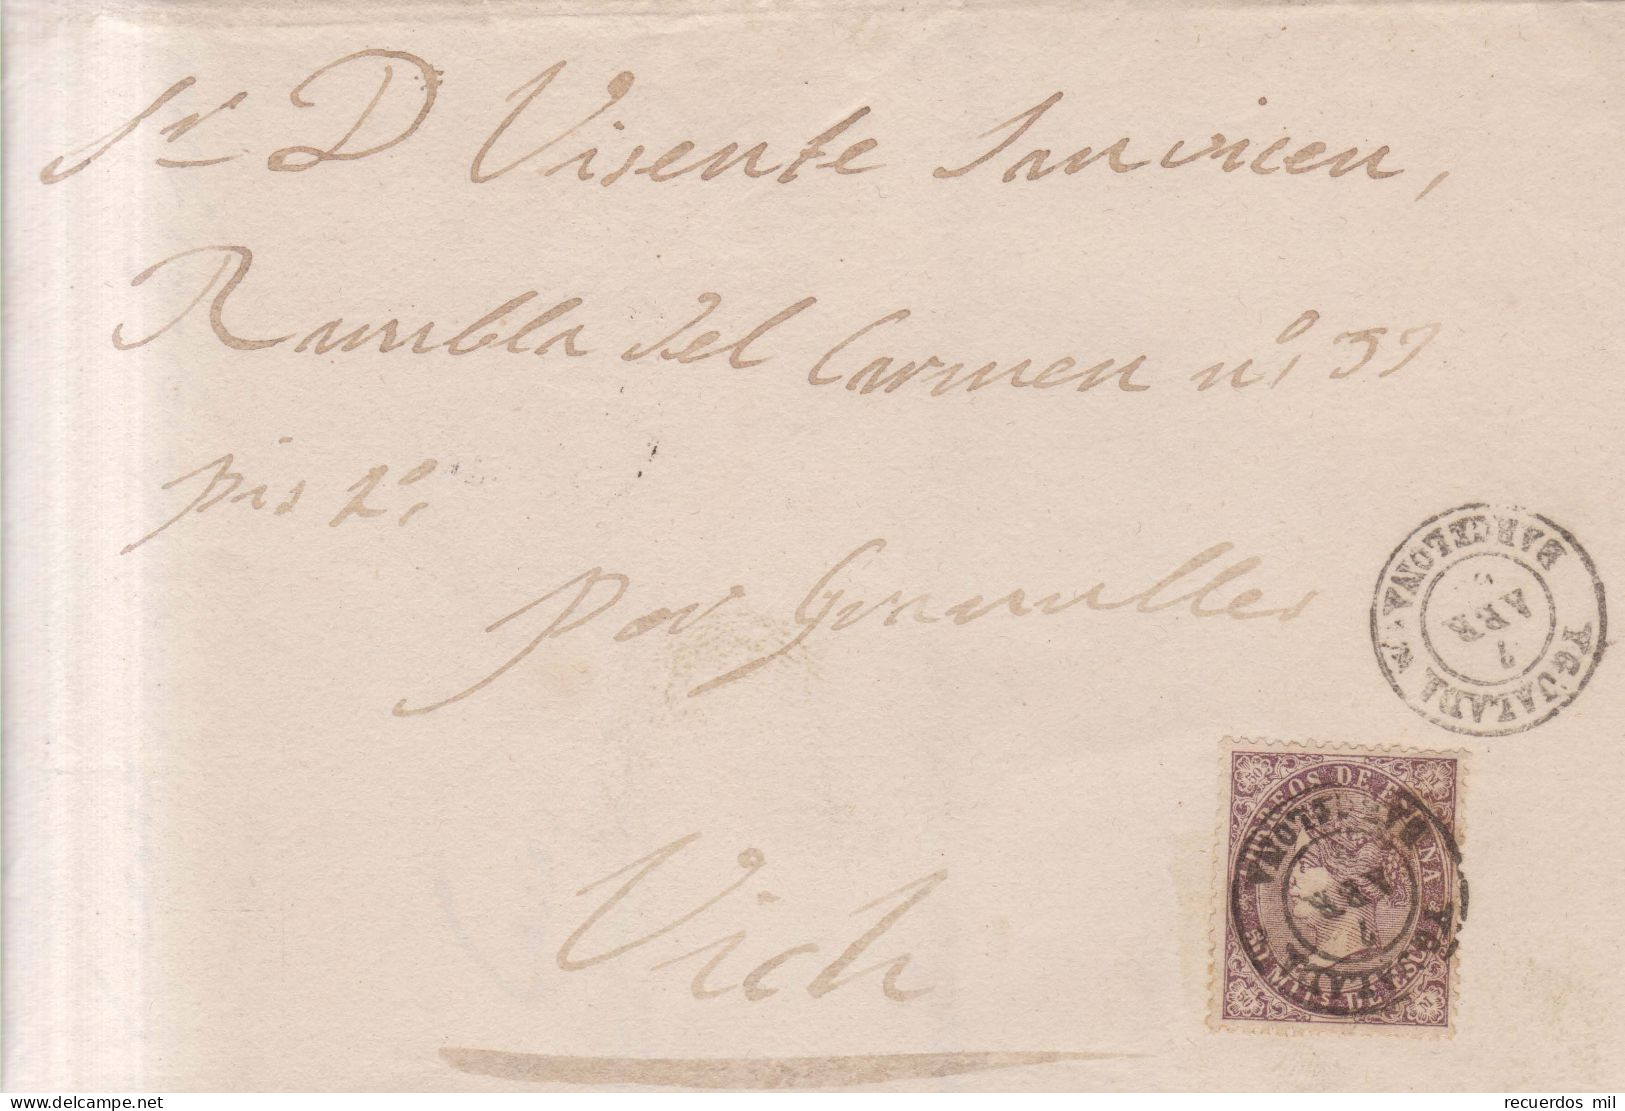 Sr D Visente Sanvicen,
Rambla del Carmen nº, 37
pis 2º,
por Granulles
Vich
YGUALADA
BARCELONA
7
ABR
CORREOS DE ESPAÑA
50 MILS DE ESCUDO
50 M
50 M
YGUALADA
BARCELONA
7
ABR
www.delcampe.net
recuerdos mil